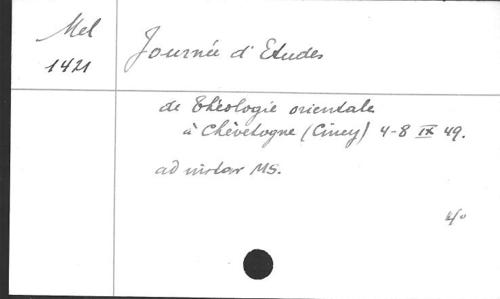 Mel
1421
Journée d'Etudes
de théologie orientale
à Chèvetogne (Ciney) 4-8 IX 49.
ad instar MS.
4°